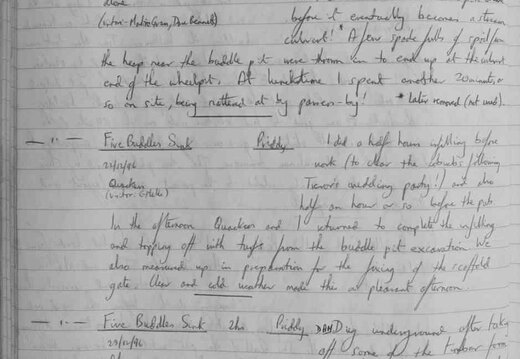 alone
(visitor: Dave Bennett)
before it eventually becomes a stream
culvert! * A few spade fulls of spoil from
the heap near the buddle pit were thrown in to end up at the
end of the wheelpit. At lunchtime I spent another 20 minutes or
so on site, being nattered at by passers-by! * later removed (not used).
— " — Five Buddles Sink Priddy I did a half hours infilling before
23/12/96 work (to clear the following
Quackers Trevor's wedding party!) and also
(visitor: half an hour or so before the pub
In the afternoon Quackers and I returned to complete the infilling
and topping off with turfs from the buddle pit excavation. We
also measured up in preparation for the fixing of the scaffold
gate. Clear and cold weather made this a pleasant afternoon.
— " — Five Buddles Sink 2hrs Priddy Dug underground after taking
29/12/96 off some of the timber from